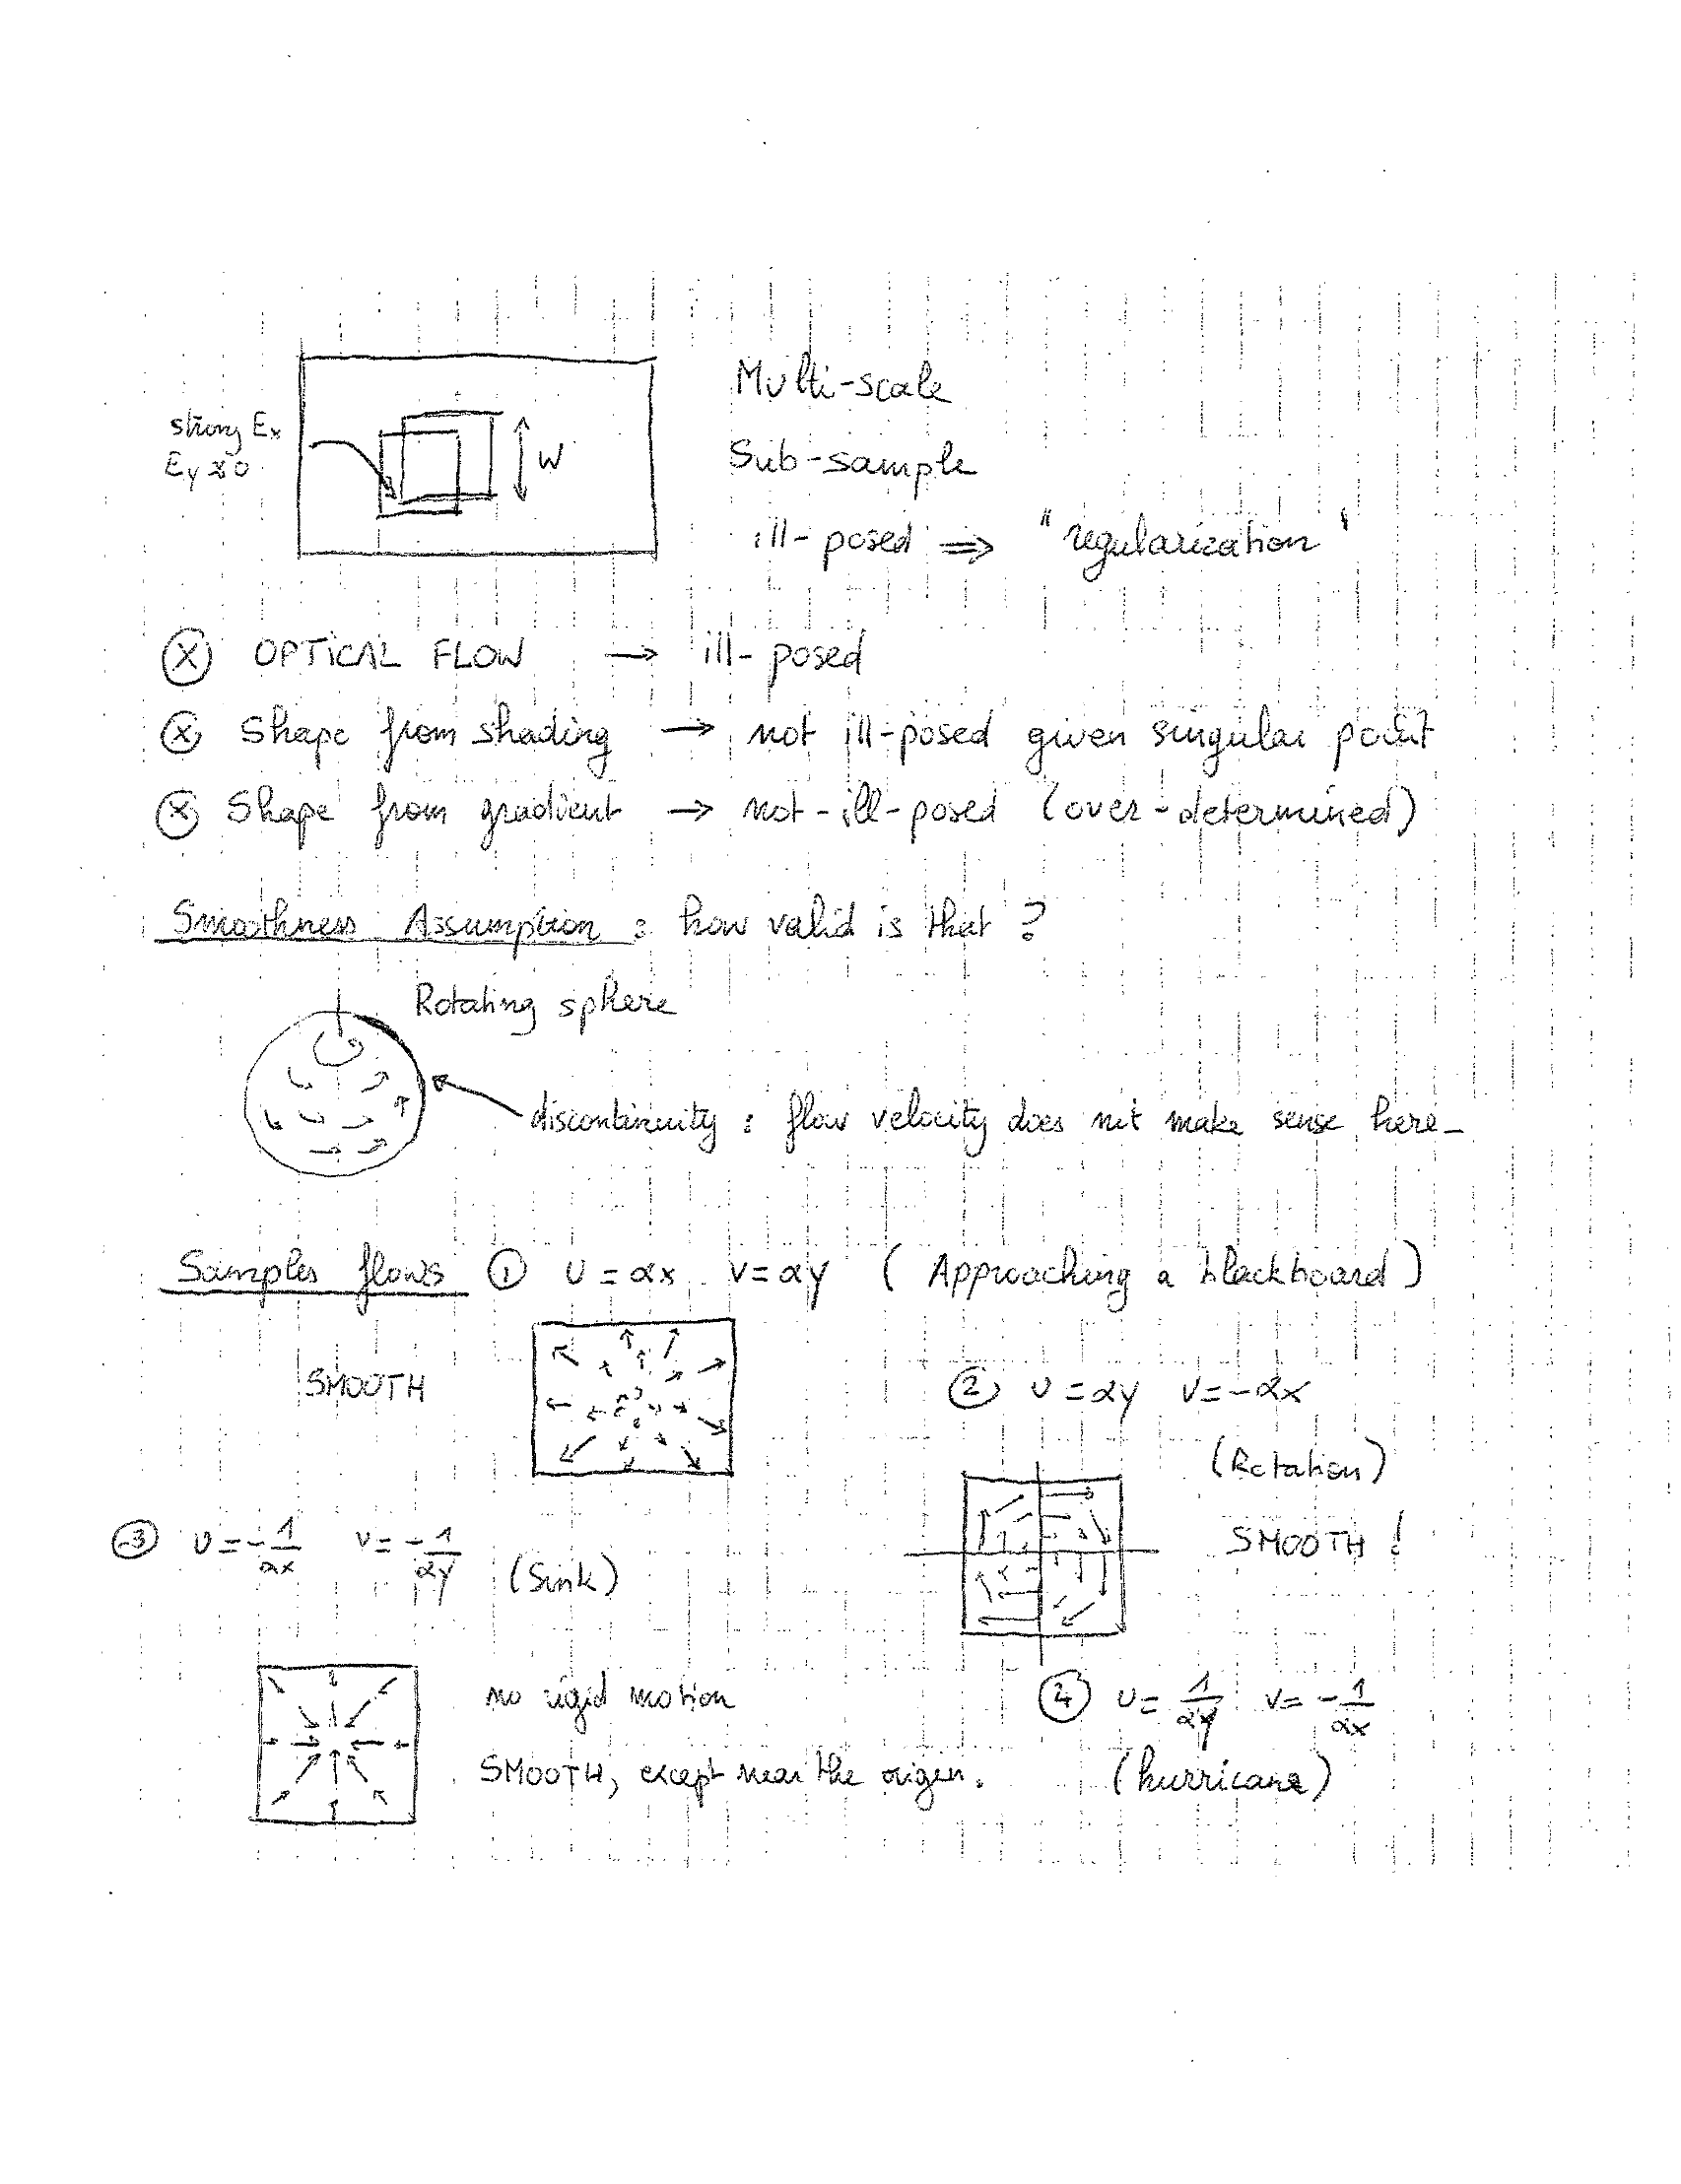 Multi-scale
strong Ex
Ey ≈ 0
W
Sub-sample
ill-posed ⇒ "regularization"
ⓧ OPTICAL FLOW → ill-posed
ⓧ Shape from shading → not ill-posed given singular point
ⓧ Shape from gradient → not-ill-posed (over-determined)
Smoothness Assumption : how valid is that ?
Rotating sphere
discontinuity : flow velocity does not make sense here_
Samples flows ① U = αx V = αy (Approaching a blackboard)
SMOOTH
② U = αy V = -αx
(Rotation)
SMOOTH !
③ U = -1/αx V = -1/αy (Sink)
no rigid motion
SMOOTH, except near the origin.
④ U = 1/αy V = -1/αx
(hurricane)